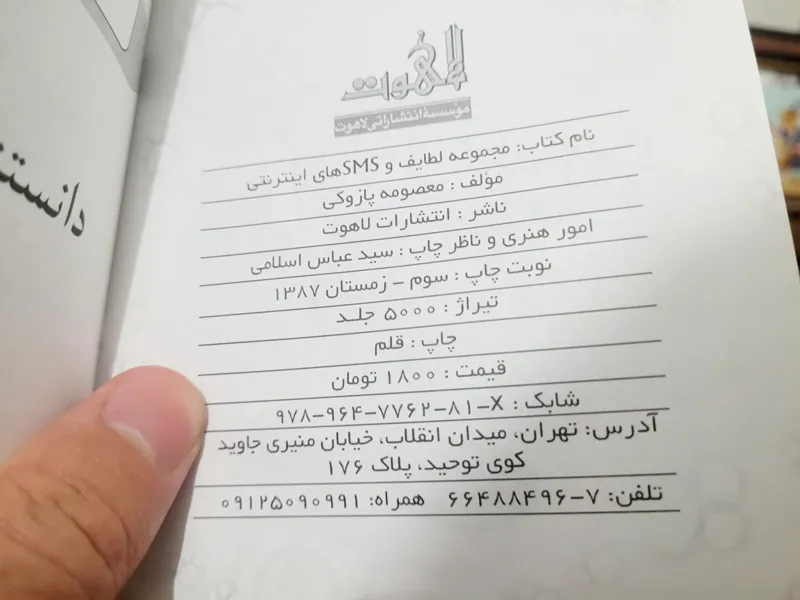 لاهوت
مؤسسهٔ انتشاراتی لاهوت
نام کتاب: مجموعه لطایف و SMSهای اینترنتی
مؤلف : معصومه پازوکی
ناشر : انتشارات لاهوت
امور هنری و ناظر چاپ : سید عباس اسلامی
نوبت چاپ : سوم – زمستان ۱۳۸۷
تیراژ : ۵۰۰۰ جلـد
چاپ : قلم
قیمت : ۱۸۰۰ تومان
شابک : ۹۷۸-۹۶۴-۷۷۶۲-۸۱-X
آدرس: تهران، میدان انقلاب، خیابان منیری جاوید
کوی توحید، پلاک ۱۷۶
تلفن: ۷-۶۶۴۸۸۴۹۶ همراه: ۰۹۱۲۵۰۹۰۹۹۱